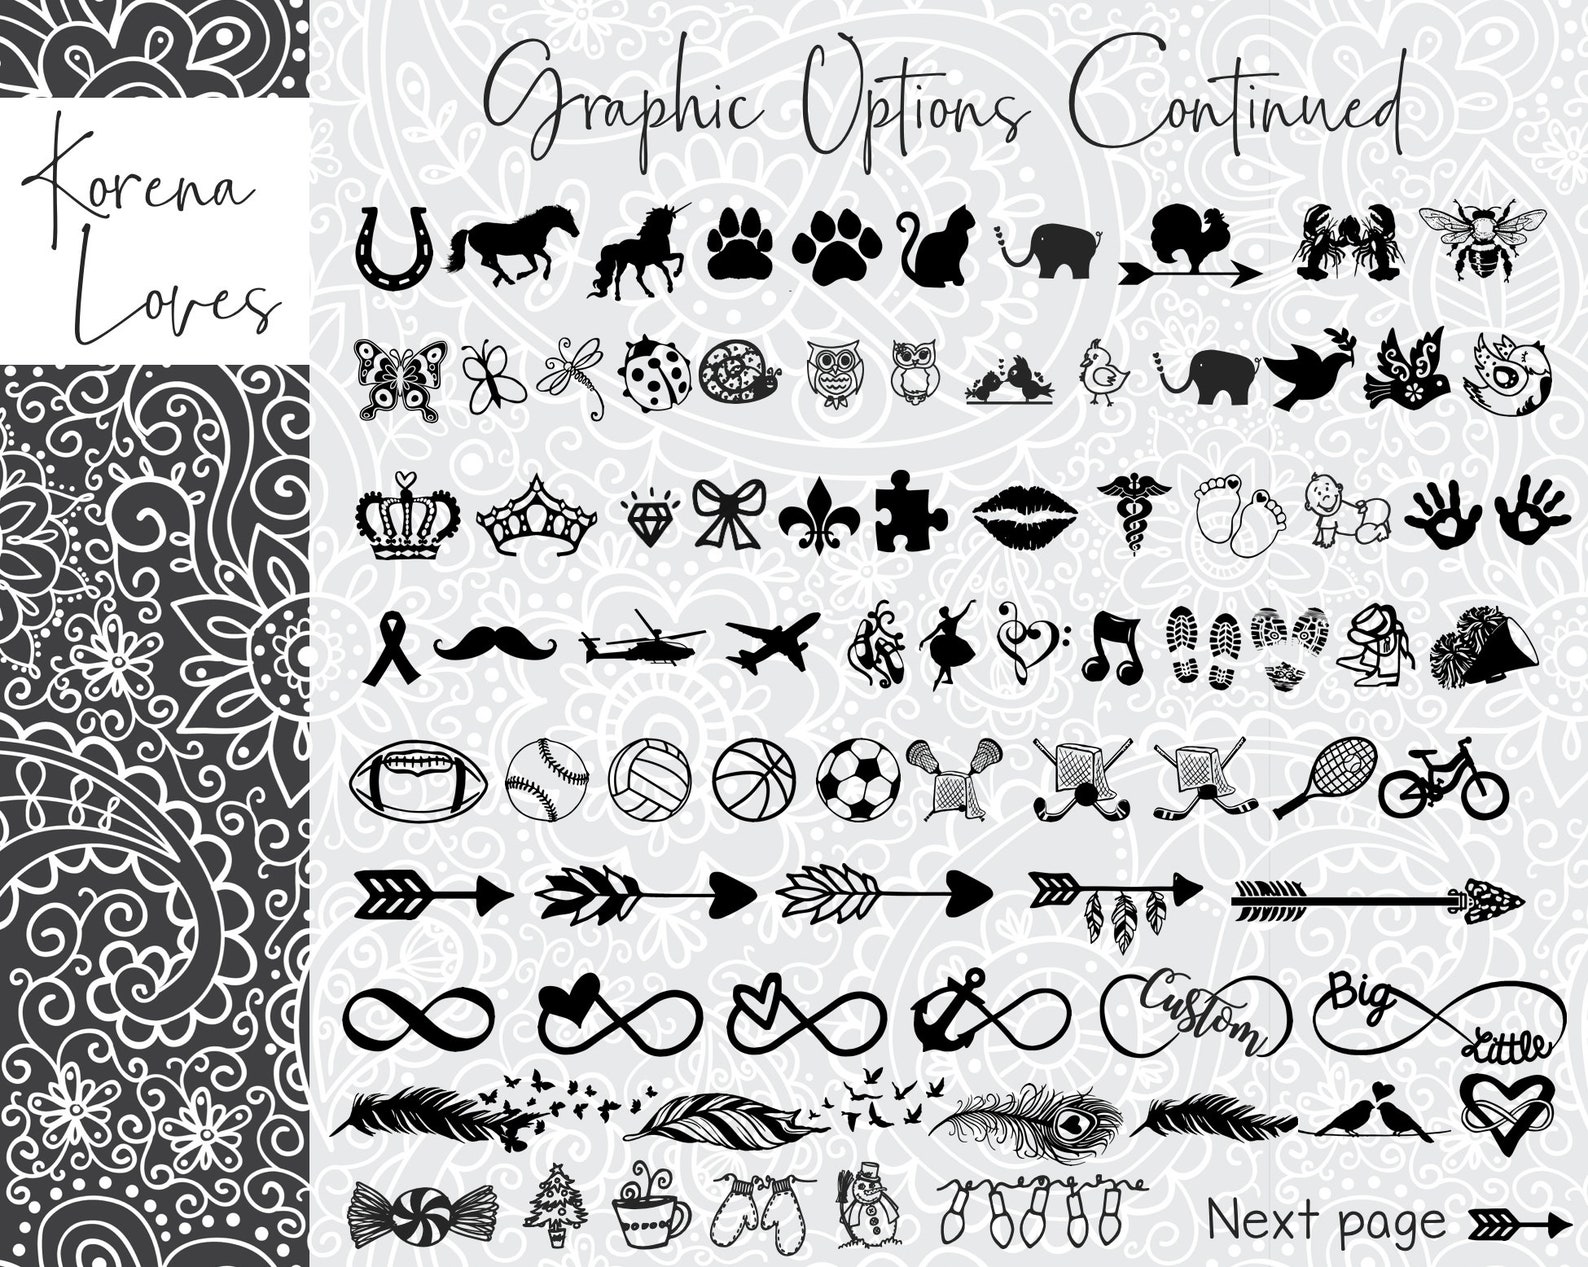 Graphic Options Continued
Korena
Loves
Custom
Big
Little
Next page